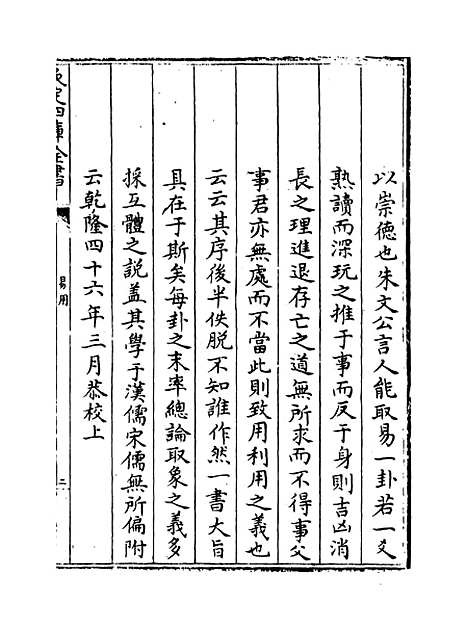 以崇德也朱文公言人能取易一卦若一爻
熟讀而深玩之推于事而反于身則吉凶消
長之理進退存亡之道無所求而不得事父
事君亦無處而不當此則致用利用之義也
云云其序後半佚脫不知誰作然一書大旨
具在于斯矣每卦之末率總論取象之義多
採互體之說蓋其學于漢儒宋儒無所偏附
云乾隆四十六年三月恭校上
欽定四庫全書
易用
二